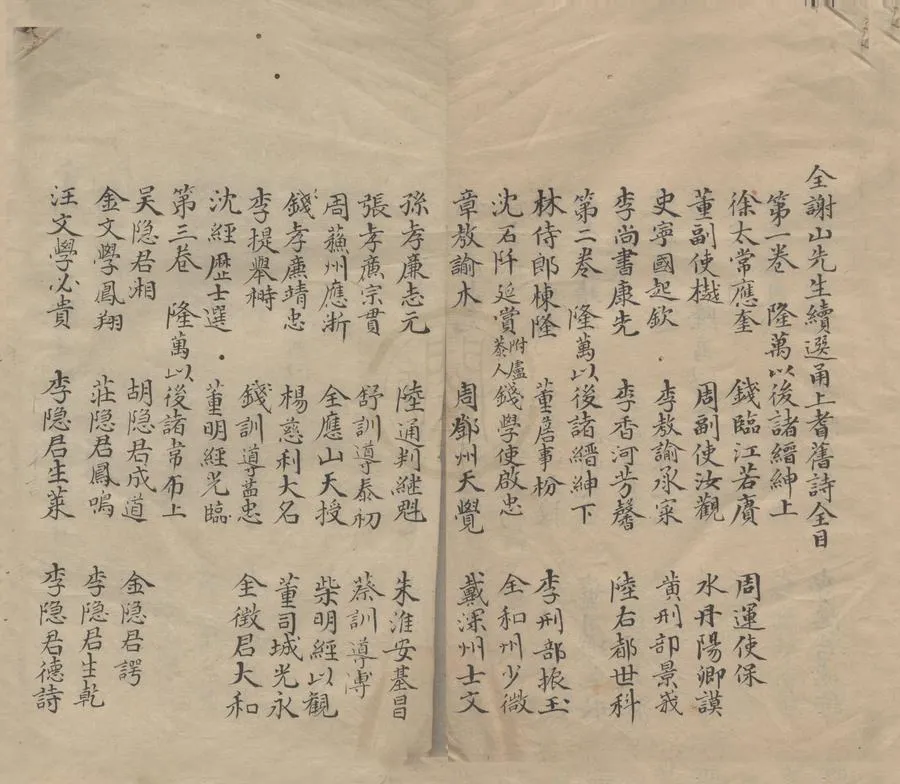 全謝山先生續選甬上耆舊詩全目
第一卷 隆萬以後諸縉紳上
徐太常應奎 錢臨江若賡 周運使保
董副使樾 周副使汝觀 水丹陽卿謨
史寧國起欽 李教諭承寀 黄刑部景莪
李尚書康先 李香河芳馨 陸右都世科
第二卷 隆萬以後諸縉紳下
林侍郎棟隆 董詹事枌 李刑部振玉
沈石阡延賞附盧泰人 錢學使啟忠 全和州少微
章教諭木 周鄧州天覺 戴深州士文
孫孝廉志元 陸通判継魁 朱淮安基昌
張孝廉宗貫 舒訓導泰初 蔡訓導溥
周蘓州應浙 全應山天授 柴明經以觀
錢孝廉靖忠 楊慈利大名 董司城光永
李提舉樹 錢訓導藎忠 全徵君大和
沈經歷士選 董明經光臨
第三卷 隆萬以後諸韋布上
吴隐君湘 胡隐君成道 金隐君諤
金文學鳳翔 莊隐君鳳鳴 李隐君生乾
汪文學必貴 李隐君生萊 李隐君德詩